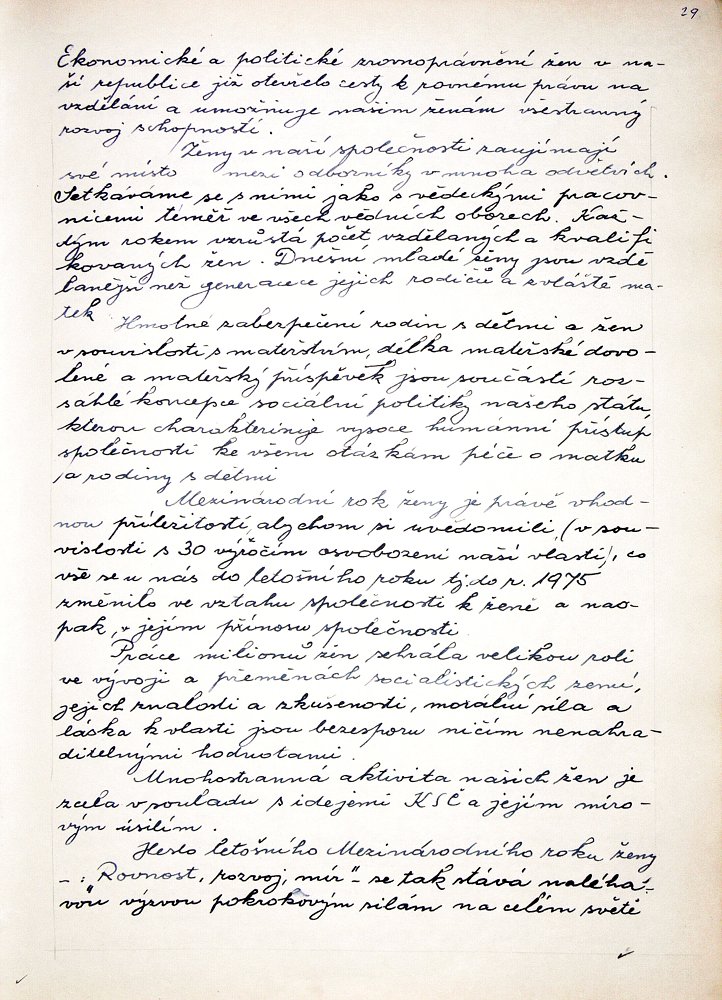 29
Ekonomické a politické zrovnoprávnění žen v na-
ší republice již otevřelo cesty k rovnému právu na
vzdělání a umožňuje našim ženám všestranný
rozvoj schopností.
Ženy v naší společnosti zaujímají
své místo mezi odborníky v mnoha odvětvích.
Setkáváme se s nimi jako s vědeckými pracov-
nicemi téměř ve všech vědních oborech. Kaž-
dým rokem vzrůstá počet vzdělaných a kvalifi
kovaných žen. Dnešní mladé ženy jsou vzdě
lanější než generace jejich rodičů a zvláště ma-
tek
Hmotné zabezpečení rodin s dětmi a žen
v souvislosti s mateřstvím, délka mateřské dovo-
lené a mateřský příspěvek jsou součástí roz-
sáhlé koncepce sociální politiky našeho státu,
kterou charakterisuje vysoce humánní přístup
společnosti ke všem otázkám péče o matku
a rodiny s dětmi
Mezinárodní rok ženy je právě vhod-
nou příležitostí, abychom si uvědomili, (v sou-
vislosti s 30 výročím osvobození naší vlasti), co
vše se u nás do letošního roku tj. do r. 1975
změnilo ve vztahu společnosti k ženě a nao-
pak, v jejím přínosu společnosti
Práce milionů žen sehrála velikou roli
ve vývoji a přeměnách socialistických zemí,
jejich znalosti a zkušenosti, morální síla a
láska k vlasti jsou bezesporu ničím nenahra-
ditelnými hodnotami.
Mnohostranná aktivita našich žen je
zcela v souladu s idejemi KSČ a jejím míro-
vým úsilím.
Heslo letošního Mezinárodního roku ženy
- : Rovnost, rozvoj, mír" - se tak stává naléha-
vou výzvou pokrokovým silám na celém světě